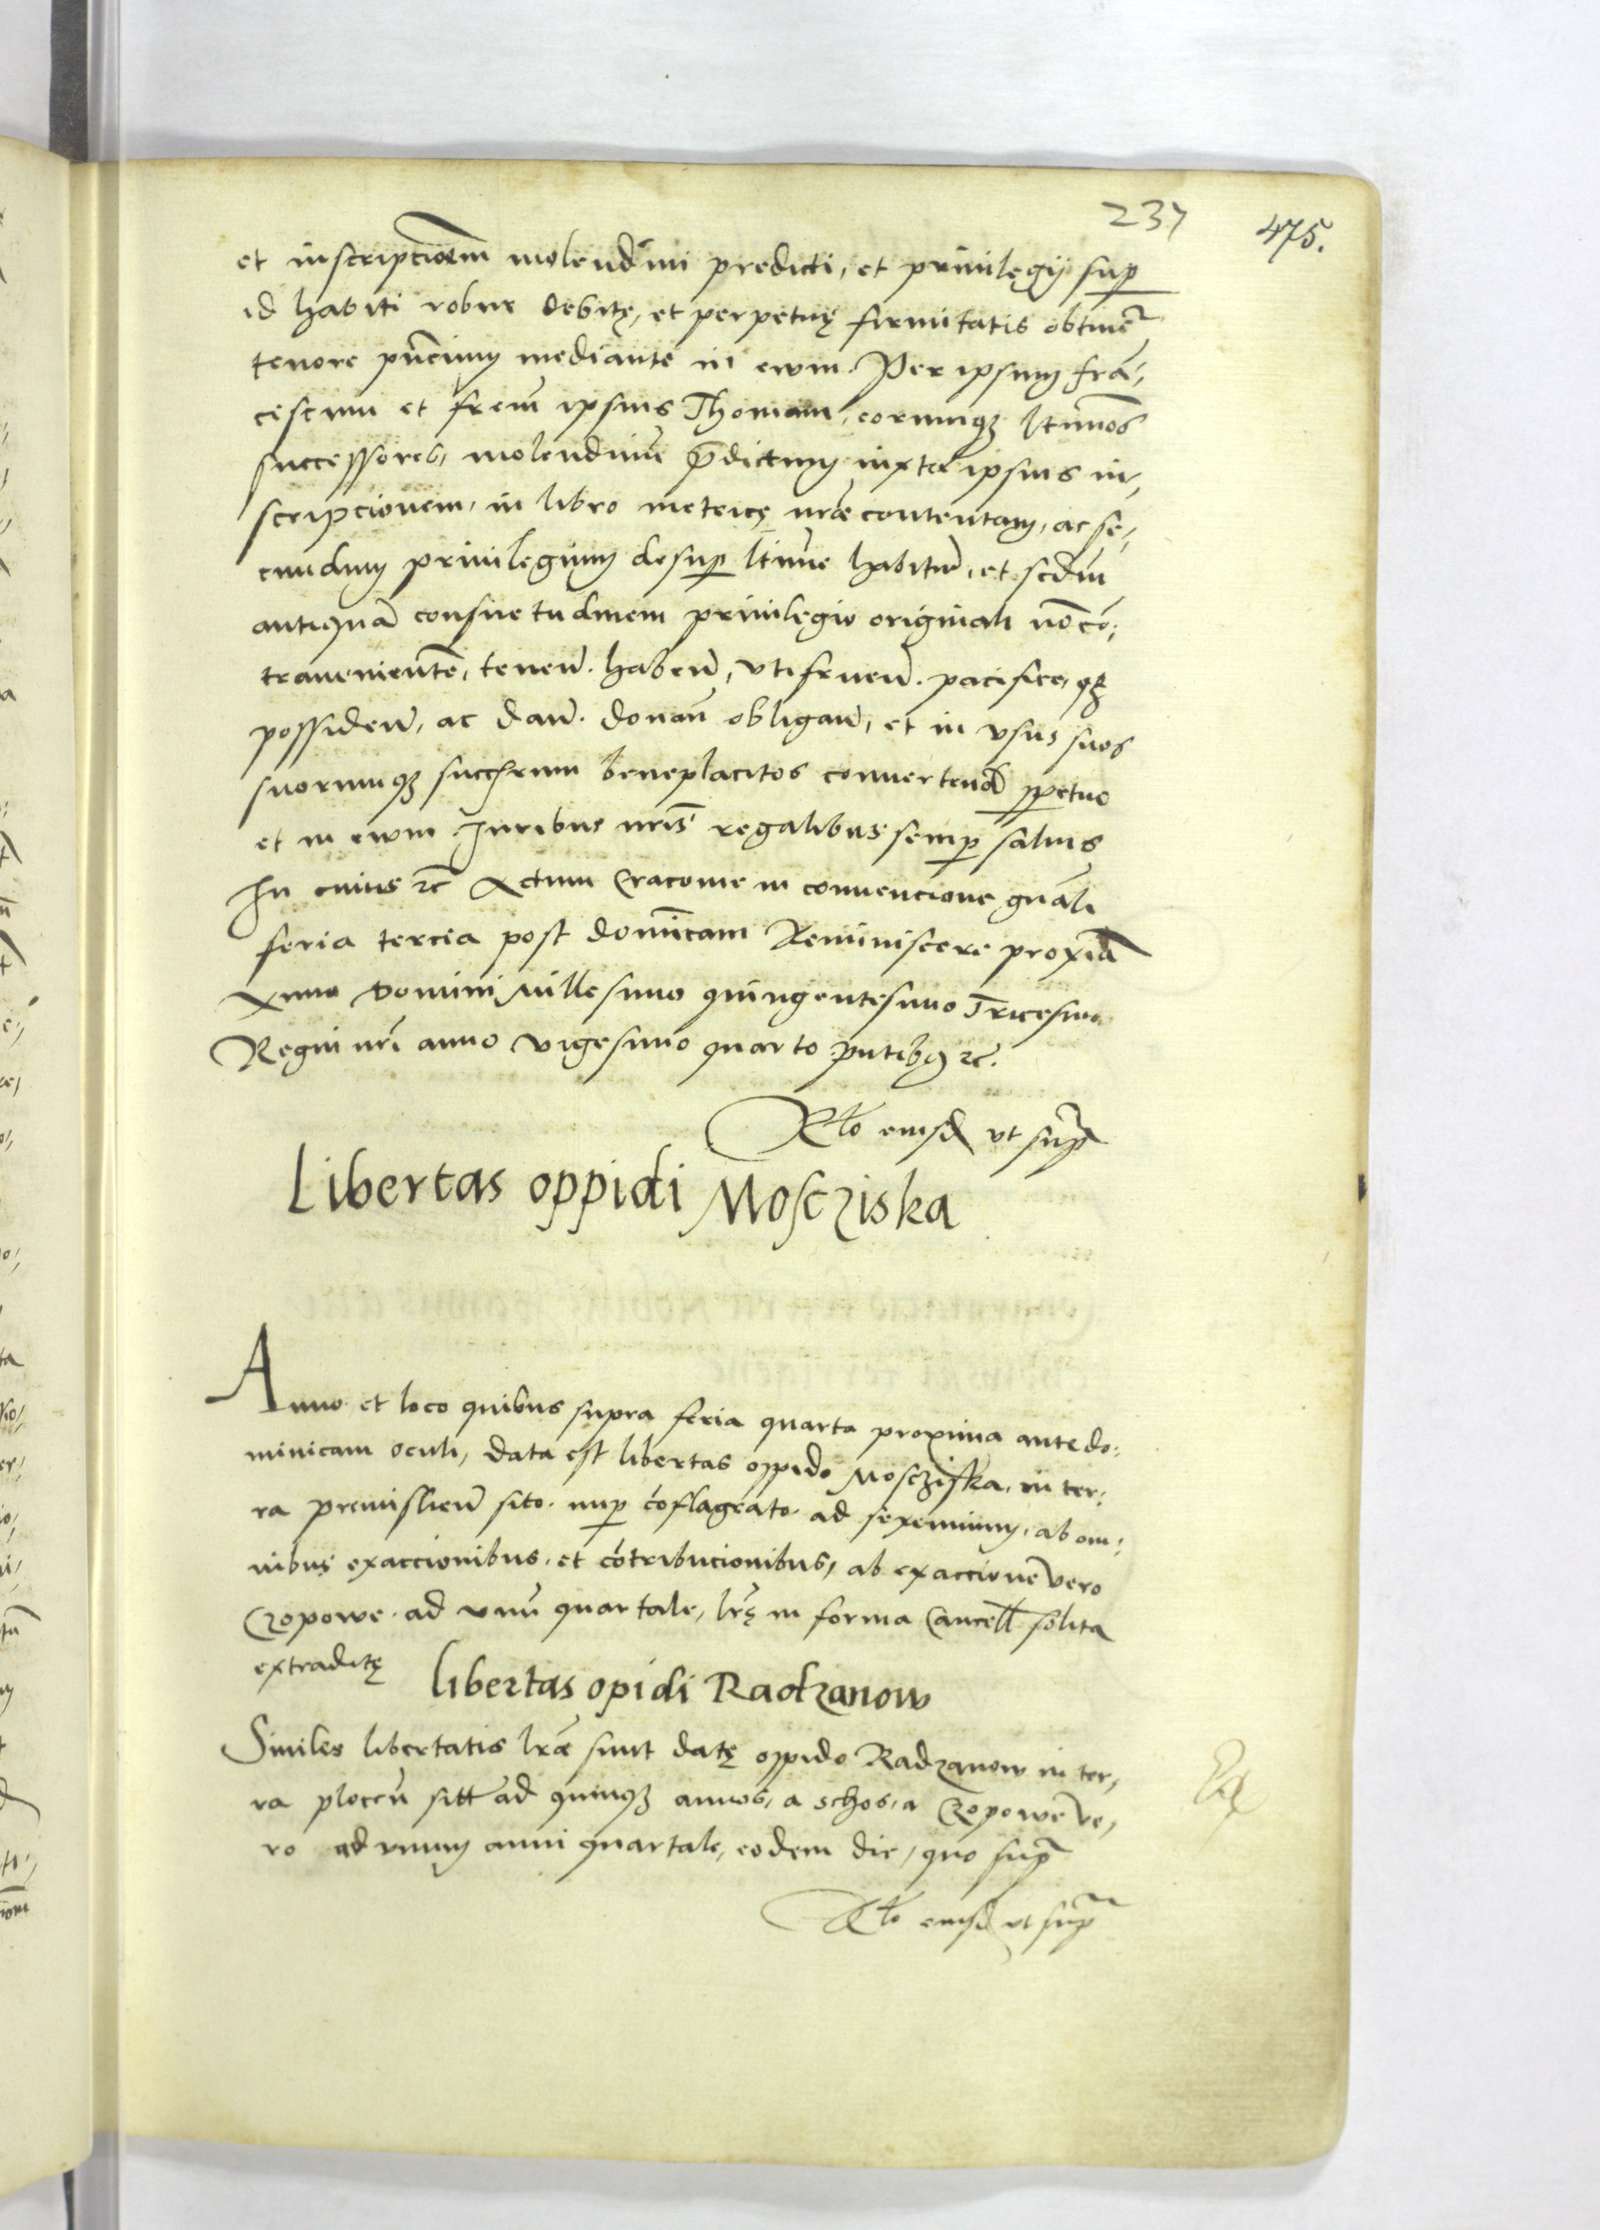 237
475.
et inscripcionem molendini predicti, et priuilegij sup
id habiti robur debitę, et perpetuę firmitatis obtinē
tenore pñcium mediante in ewm. Per ipsum frā,
cescum et frem ipsius Thomam, eorumqȝ ltimos
successores, molendinū p̄dictum iuxta ipsius in,
scripcionem, in libro metricę nrae contentam, ac se,
cundum priuilegium desup ltime habitū, et scdm
antiquā consuetudinem priuilegio originali nō cō,
trauenientē, tenen̄. haben̄, vtifruen̄. pacifice, qȝ
possiden̄, ac dan̄. donan̄ obligan̄, et in vsus suos
suorumqȝ succrum beneplacitos conuertend ppetuo
et in ewm Juribus nris regalibus semp saluis
In cuius rc Actum Cracouie in conuencione gnāli
feria tercia post dominicam Reminiscere proximā
Anno Domini Millesimo quingentesimo Tricesimo
Regni nri anno vigesimo quarto pntibus rc.
Rlo eiusd vt supra
Libertas oppidi Mosczıska
Anno et loco quibus supra feria quarta proxima ante do,
minicam oculi, data est libertas oppido Mosczıska, in ter,
ra premislien̄ sito. nup cōflagrato. ad sexennium, ab om,
nibus exaccionibus, et cōtribucionibus, ab exaccione vero
Czopowe. ad vnū quartale, lrę in forma Cancell solita
extraditę
libertas opidi Radzanow
Similes libertatis lrae sunt datę oppido Radzanow in ter,
ra plocen̄ sitt ad quinqȝ annos, a schos, a Czopowe ve,
ro ad vnum anni quartale, eodem die, quo supra
Rlo eiusd vt supra